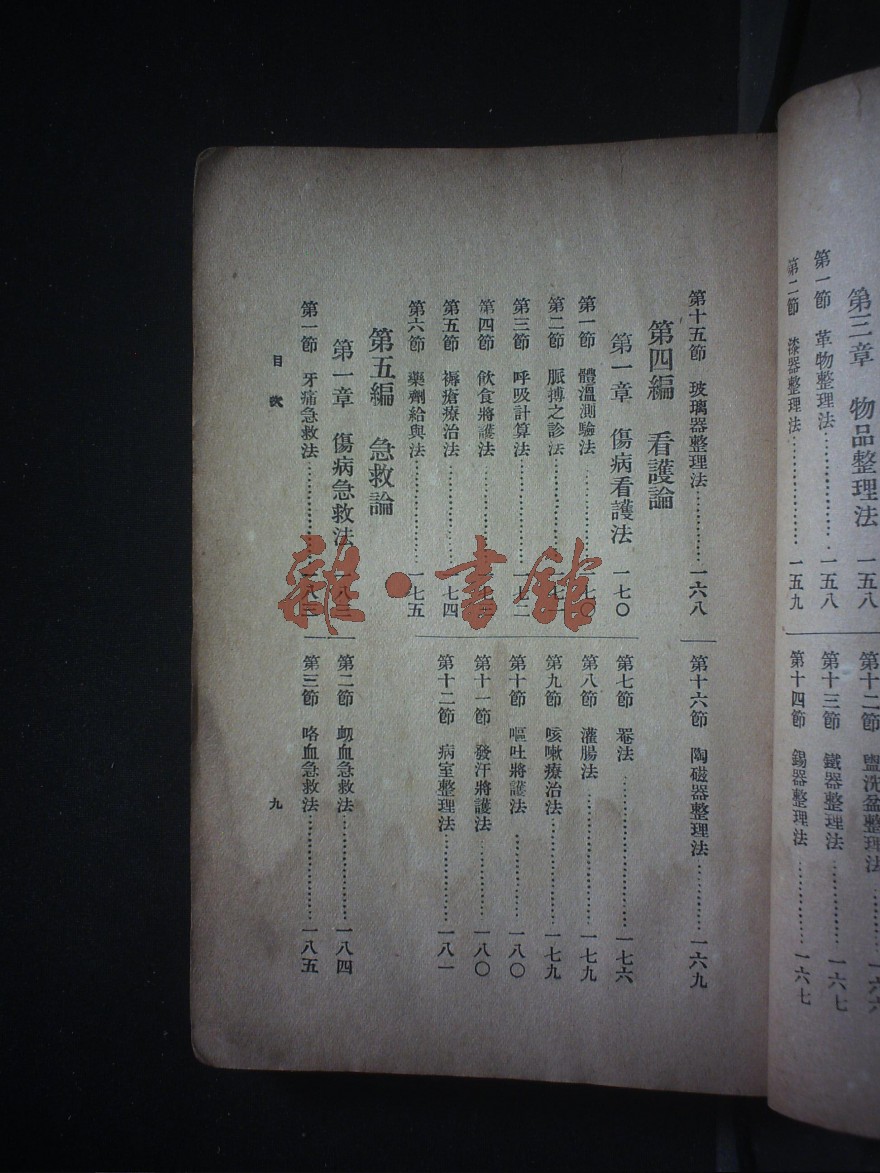 第三章　物品整理法　一五八
第一節　革物整理法…………一五八
第二節　漆器整理法…………一五九
第十二節　盥洗盆整理法…………
第十三節　鐵器整理法…………一六七
第十四節　錫器整理法…………一六七
第十五節　玻璃器整理法…………一六八
第十六節　陶磁器整理法…………一六九
第四編　看護論
第一章　傷病看護法　一七〇
第一節　體溫測驗法…………一七〇
第二節　脈搏之診法…………一七一
第三節　呼吸計算法…………一七二
第四節　飲食將護法…………
第五節　褥瘡療治法…………一七四
第六節　藥劑給與法…………一七五
第七節　罨法…………一七六
第八節　灌腸法…………一七九
第九節　咳嗽療治法…………一七九
第十節　嘔吐將護法…………一八〇
第十一節　發汗將護法…………一八〇
第十二節　病室整理法…………一八一
第五編　急救論
第一章　傷病急救法　一八三
第一節　牙痛急救法…………一八三
第二節　衂血急救法…………一八四
第三節　咯血急救法…………一八五
目次
九
雜·書館